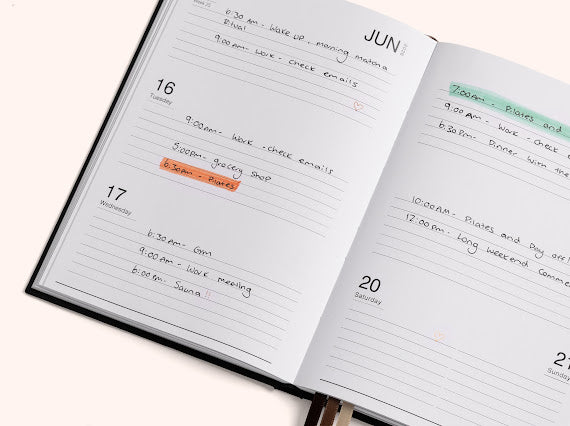 Week 25
JUN
6:30 AM - Wake up, morning matcha
Ritual
9:00AM - Work - check emails
16
Tuesday
9:00AM - Work - check emails
5:00PM - grocery shop
6:30AM - Pilates
17
Wednesday
6:30AM - Gym
9:00AM - Work meeting
6:00PM - Sauna !!
7:00AM - Pilates and
9:00 AM - Work - check
6:30PM - Dinner with the
10:00AM - Pilates and Day off!
12:00PM - Long weekend
20
Saturday
21
Sunday